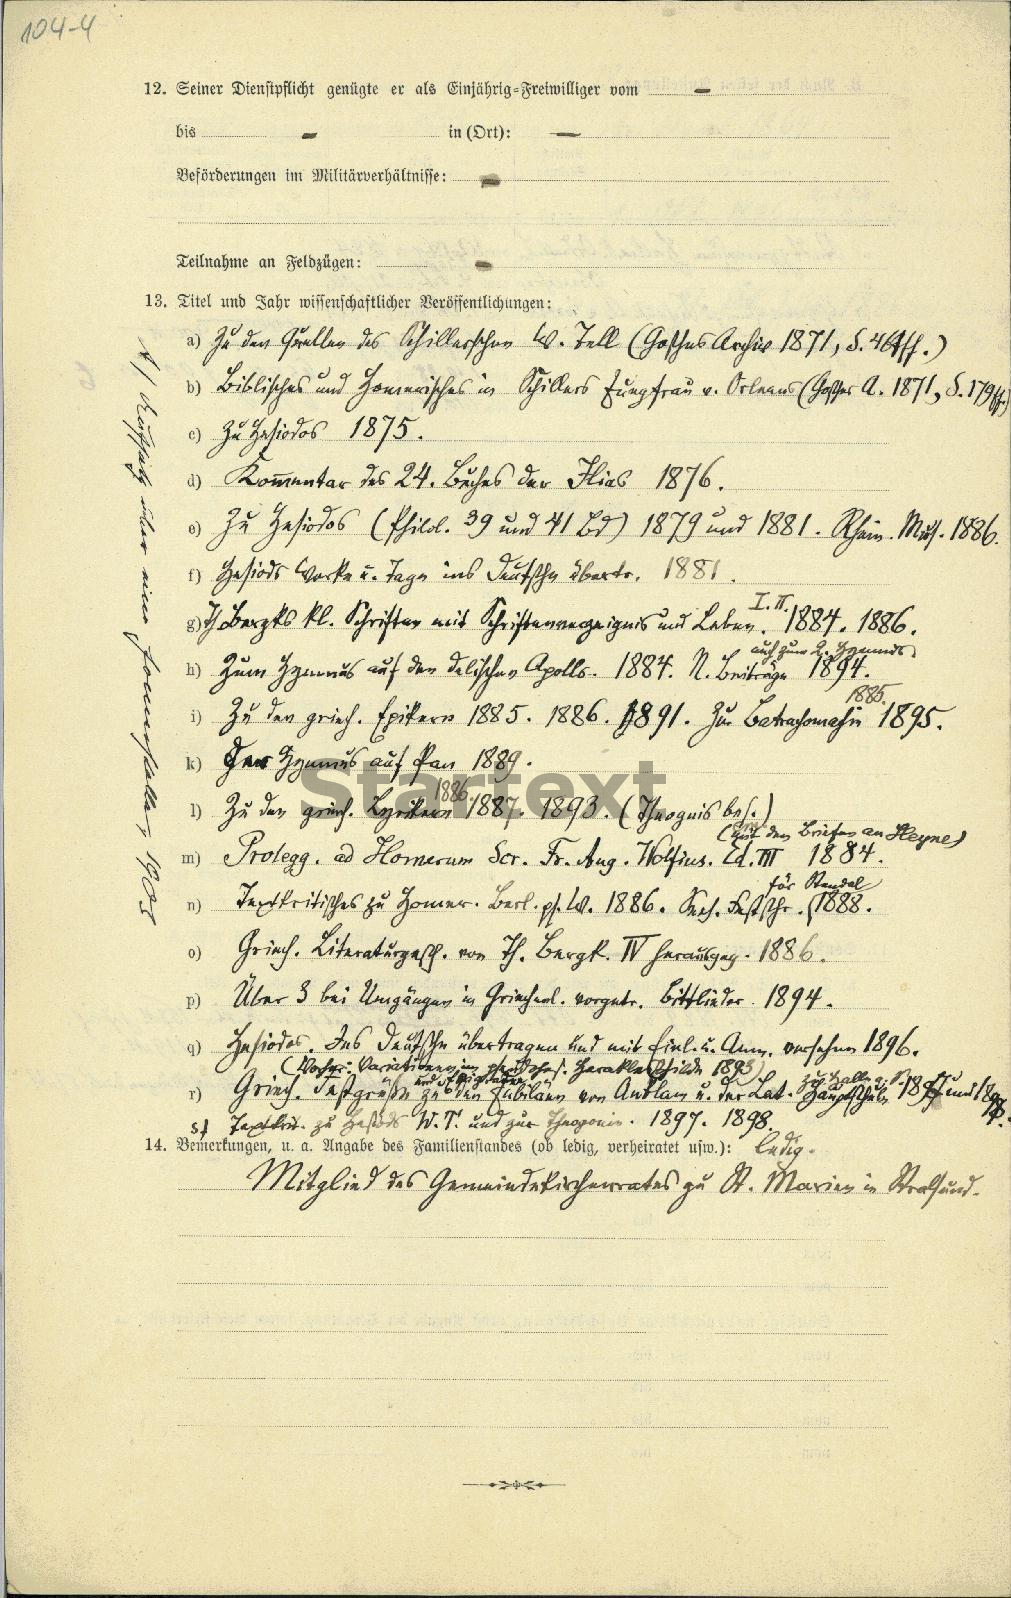 104-4
12. Seiner Dienstpflicht genügte er als Einjährig-Freiwilliger vom –
bis – in (Ort): –
Beförderungen im Militärverhältnisse: –
Teilnahme an Feldzügen: –
13. Titel und Jahr wissenschaftlicher Veröffentlichungen:
a) Zu den Quellen des Schillerschen W. Tell (Gosches Archiv 1871, S. 461ff.)
b) Biblisches und Homerisches in Schillers Jungfrau v. Orleans (Gosches A. 1871, S. 179ff.)
c) Zu Hesiodos 1875.
d) Kommentar des 24. Buches der Ilias 1876.
e) Zu Hesiodos (Philol. 39 und 41 Bd) 1879 und 1881. Rhein. Mus. 1886.
f) Hesiods Werke u. Tage ins Deutsche übertr. 1881.
I. II.
g) Th Bergks kl. Schriften mit Schriftenverzeignis und Leben. 1884. 1886.
auch zum 2. Hymnus
h) Zum Hymnus auf den delischen Apollo. 1884. N. Beiträge 1894.
1885.
i) Zu den griech. Epikern 1885. 1886. 1891. Zur Batrachomachie 1895.
k) Der Hymnus auf Pan 1889.
1886.
l) Zu den griech. Lyrikern 1887. 1893. (Theognis bes.)
(mit den Briefen an Heyne)
m) Prolegg. ad Homerum Scr. Fr. Aug. Wolfius. Ed. III 1884.
für Stendal
n) Textkritisches zu Homer. Berl. ph. W. 1886. Sech. Festschr. 1888.
o) Griech. Literaturgesch. von Th. Bergk. IV herausgeg. 1886.
p) Über 3 bei Umgängen in Griechenl. vorgetr. Bittlieder 1894.
q) Hesiodos. Ins Deutsche übertragen und mit Einl. u. Anm. versehen 1896.
(Vorher: Variationen im pseudohes. Heraklesschilde 1893)
r) Griech. Festgrüße zu den Jubiläen von Anklam u. der Lat. Hauptschule
zu Halle a. S.
s) Textkrit. zu Hesiods W. T. und zur Theogonie. 1897. 1898.
14. Bemerkungen, u. a. Angabe des Familienstandes (ob ledig, verheiratet usw.): ledig.
Mitglied des Gemeindekirchenrates zu St. Marien in Stralsund.
über eine 1903
Startext